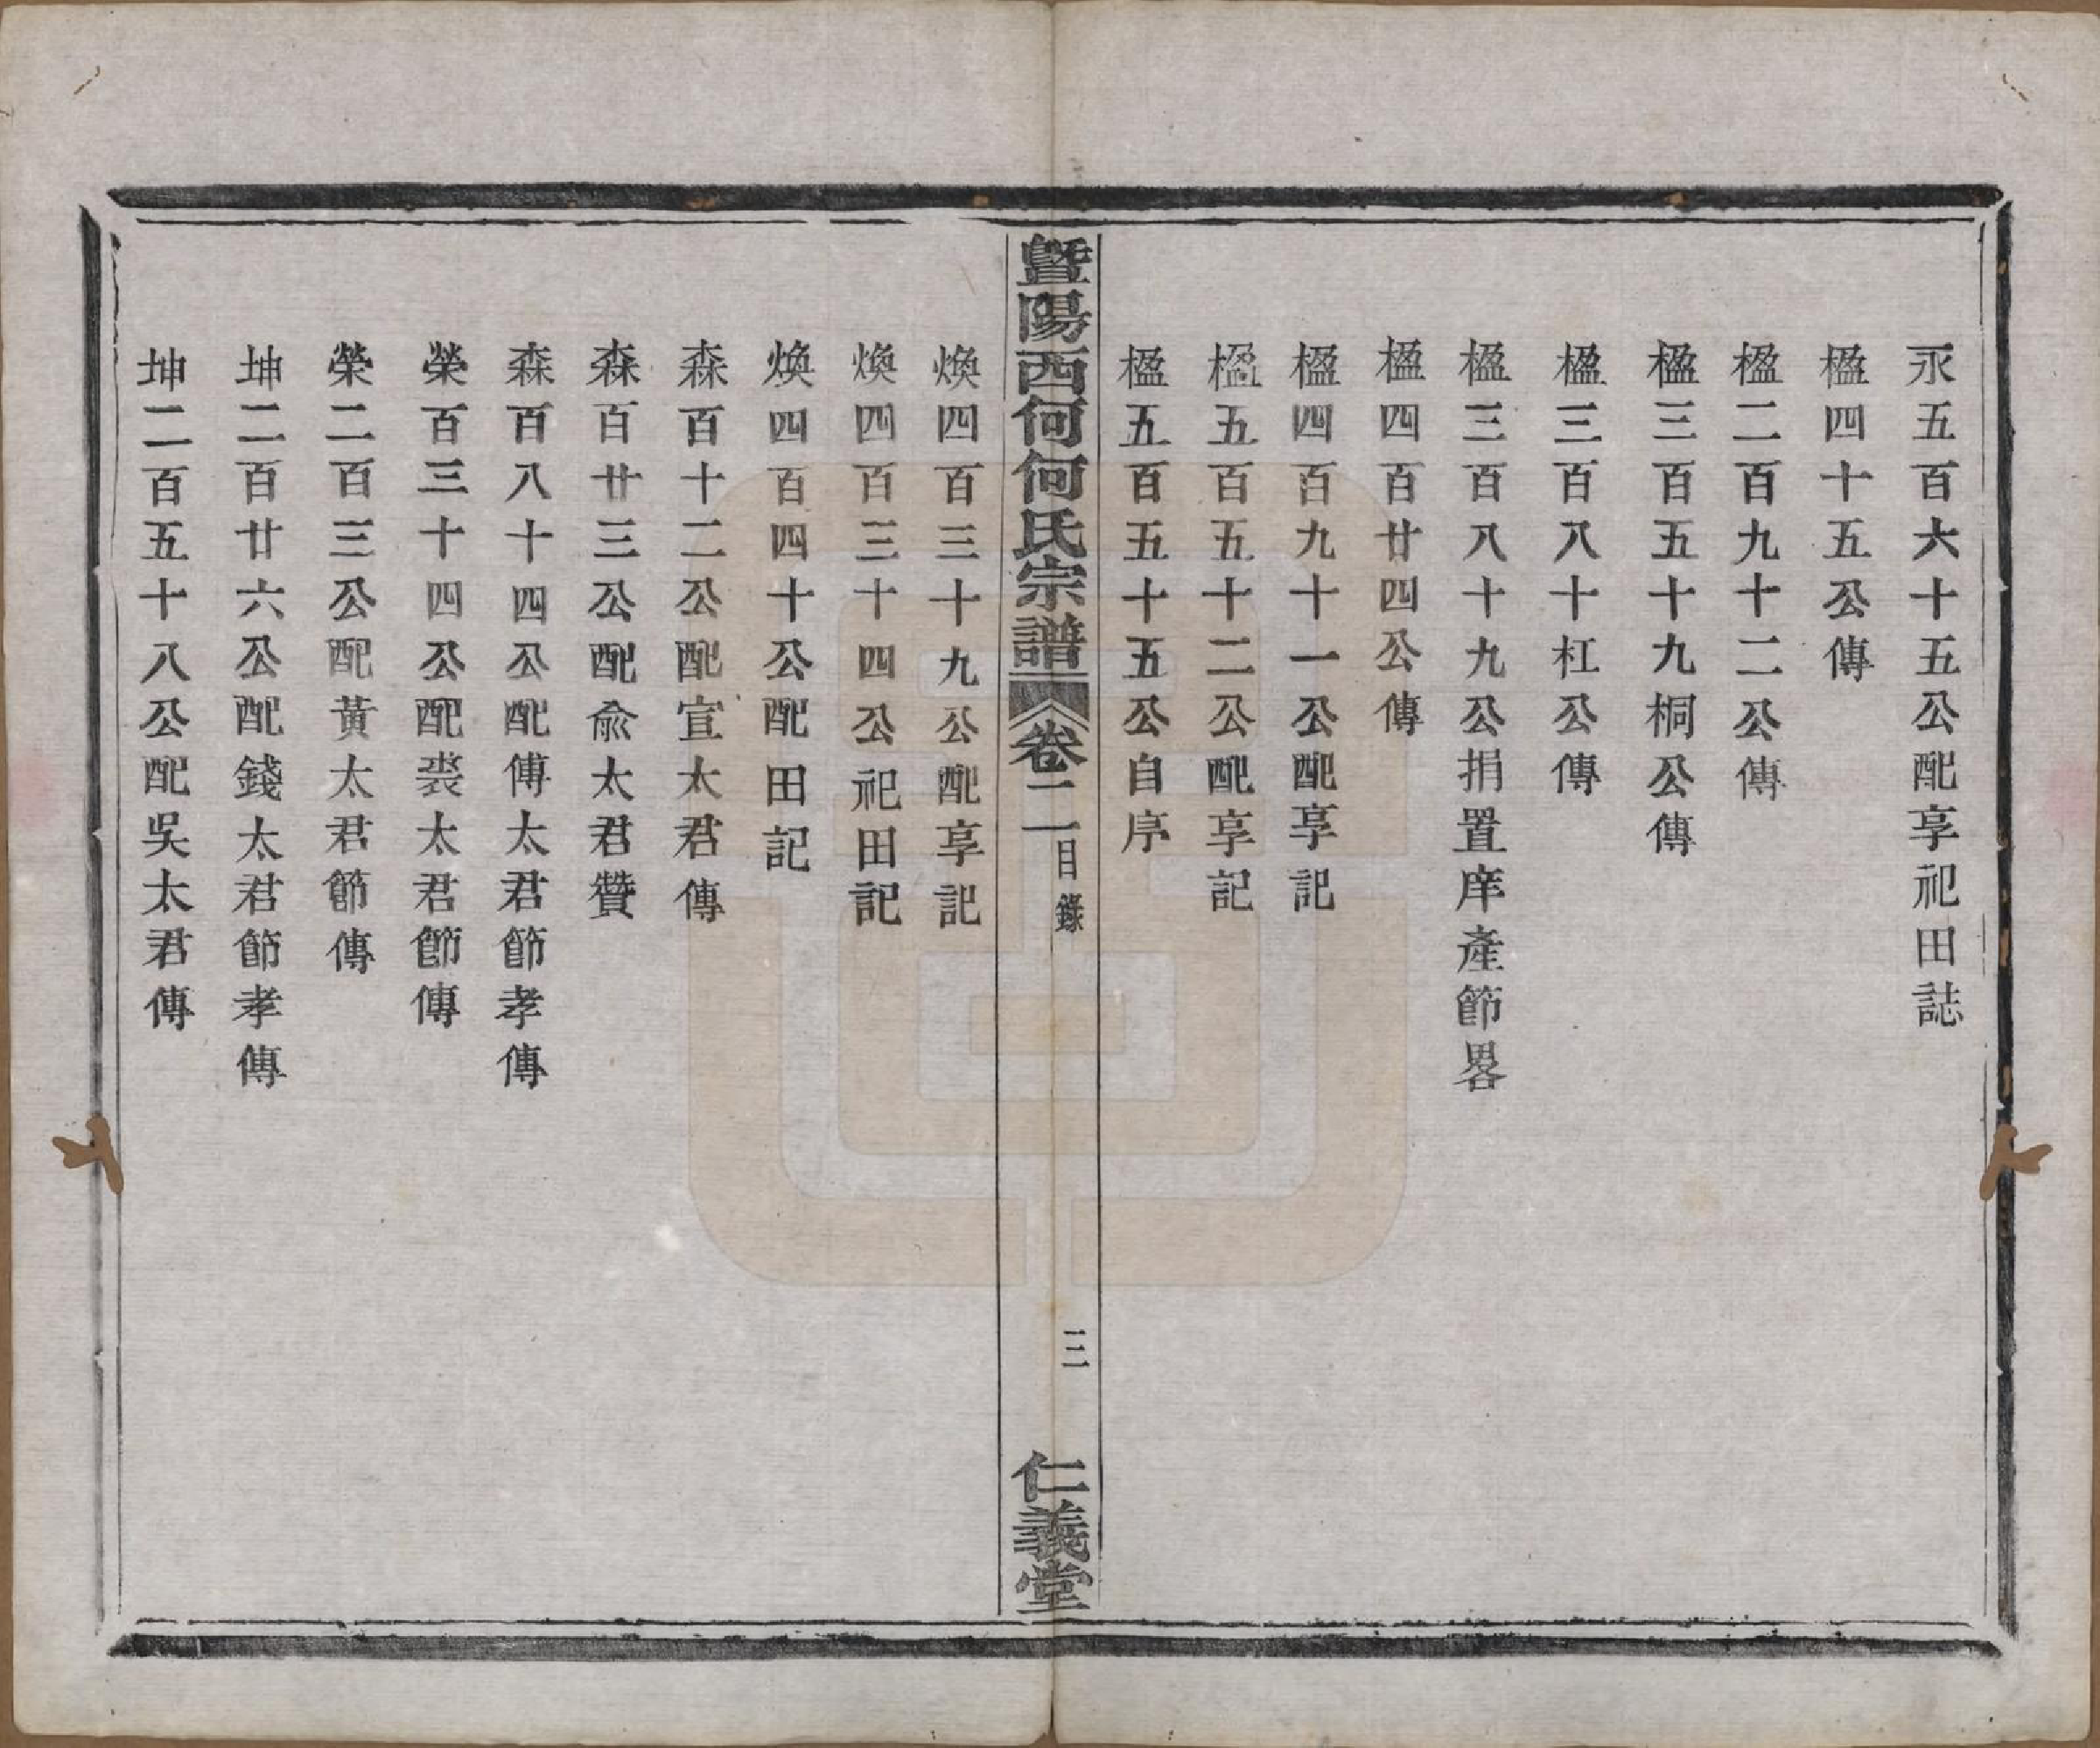 永五百六十五公配享祀田誌
楹四十五公傳
楹二百九十二公傳
楹三百五十九桐公傳
楹三百八十杠公傳
楹三百八十九公捐置庠產節畧
楹四百廿四公傳
楹四百九十一公配享記
楹五百五十二公配享記
楹五百五十五公自序
暨陽西何何氏宗譜 卷二 目錄 三 仁義堂
煥四百三十九公配享記
煥四百三十四公祀田記
煥四百四十公配田記
森百十二公配宣太君傳
森百廿三公配俞太君贊
森百八十四公配傅太君節孝傳
榮百三十四公配裘太君節傳
榮二百三公配黃太君節傳
坤二百廿六公配錢太君節孝傳
坤二百五十八公配吳太君傳